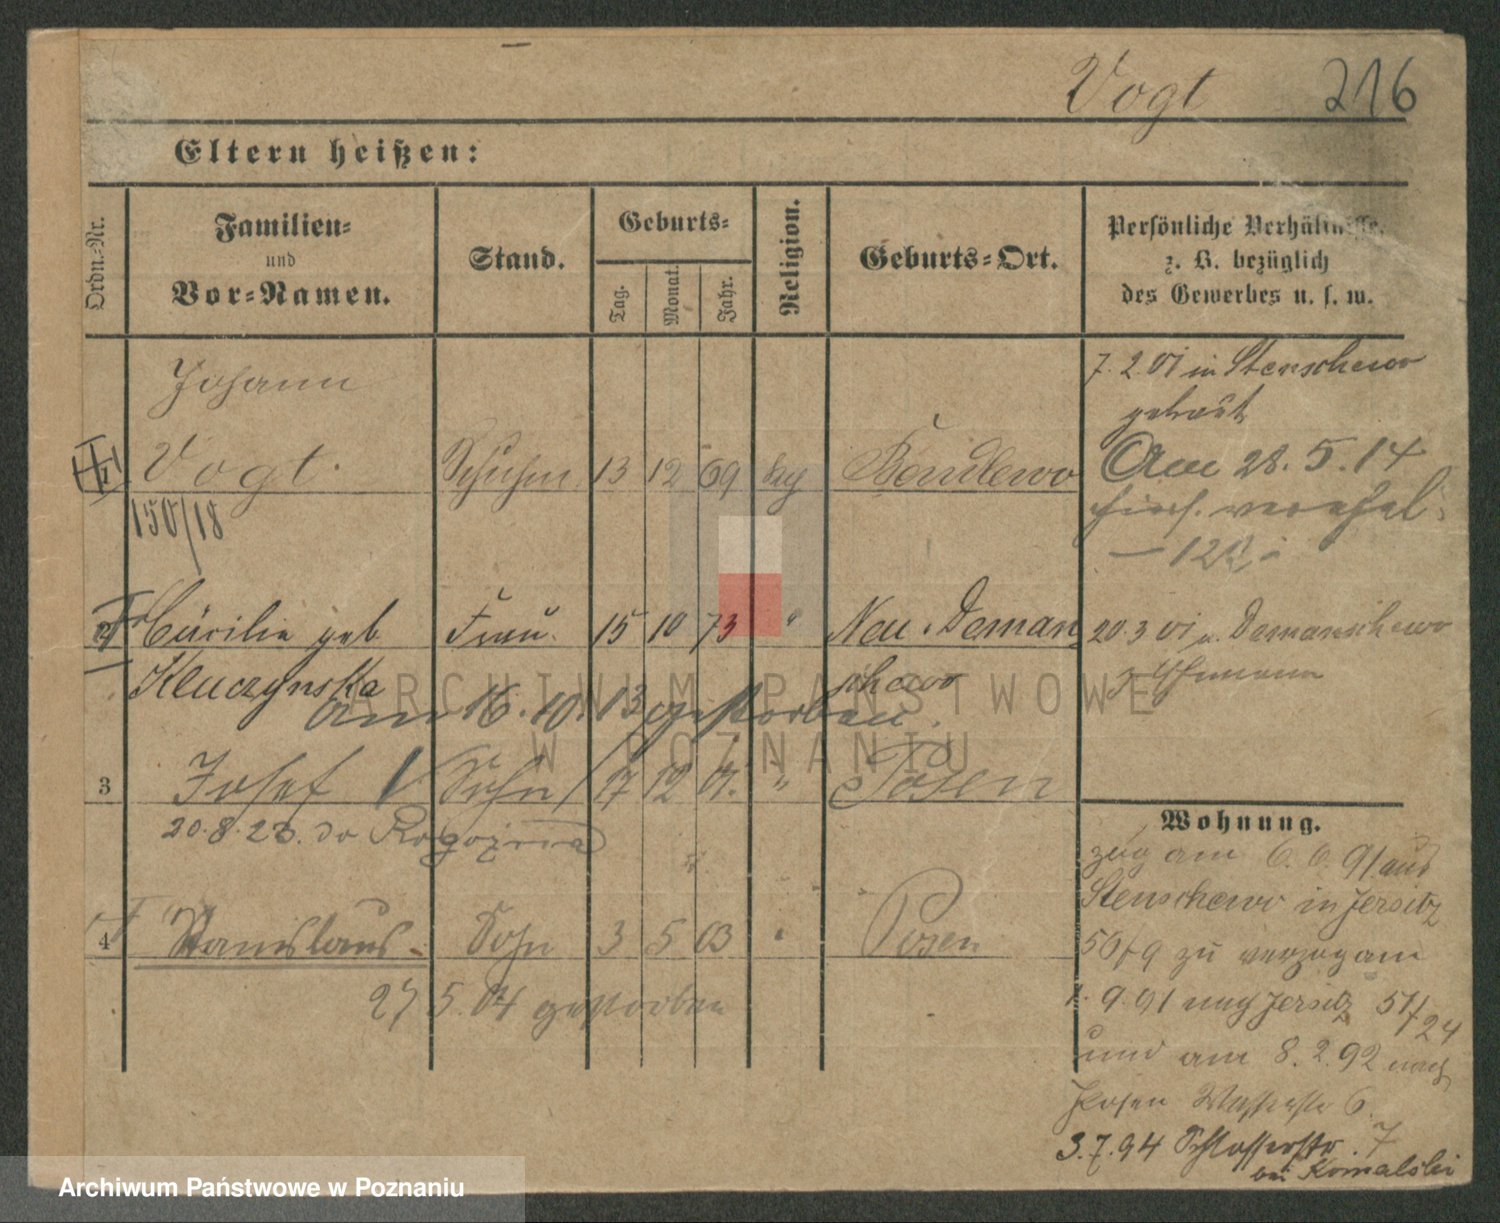 Vogt 216
Eltern heißen:
Ordn.-Nr.
Familien-
und
Vor-Namen.
Stand.
Geburts-
Tag. Monat. Jahr.
Religion.
Geburts-Ort.
Persönliche Verhältnisse,
z. B. bezüglich
des Gewerbes u. s. w.
Johann
1 Vogt Schuhm. 13 12 69 Bendlewo
150/18
7. 2. 01 in Stenschewo
getraut
Am 28. 5. 14
2 Cäcilie geb Frau 15 10 73 " Neu-Deman
Kluczynska schewo
am 16. 10. 13 gestorben.
20. 3 01 Demanschewo
3 Josef V Sohn 17 12 01. " Posen
20. 8. 23. do Rogoźna
4 Stanislaus Sohn 3 5 03 " Posen
27 5. 04 gestorben
Wohnung.
zug am 6. 6. 91 aus
Stenschewo in Jersitz
50/9 zu verzog am
1. 9. 91 nach Jersitz 51/24
und am 8. 2. 92 nach
Posen 6.
3. 7. 94 Schlosserstr. 7
bei Kowalski
ARCHIWUM PAŃSTWOWE
W POZNANIU
Archiwum Państwowe w Poznaniu